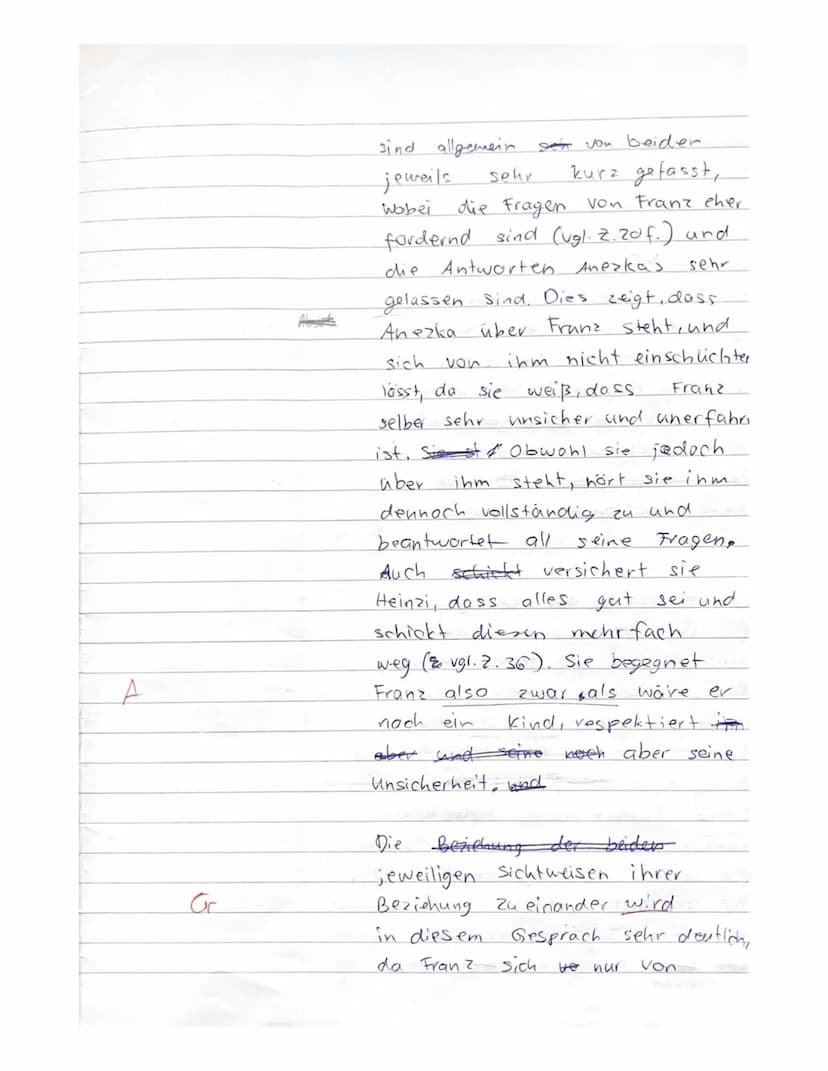 sind allgemein von beiden
jeweils sehr kurz gefasst,
wobei die Fragen von Franz eher
fordernd sind (vgl. Z. 20f.) und
die Antworten Anezkas sehr
gelassen sind. Dies zeigt, dass
Anezka über Franz steht, und
sich von ihm nicht einschüchter
lässt, da sie weiß, dass Franz
selber sehr unsicher und unerfahr
ist. Obwohl sie jedoch
über ihm steht, hört sie ihm
dennoch vollständig zu und
beantwortet all seine Fragen.
Auch schickt versichert sie
Heinzi, dass alles gut sei und
schickt diesen mehrfach
weg (vgl. Z. 36). Sie begegnet
A
Franz also zwar, als wäre er
noch ein Kind, respektiert im
aber und seine noch aber seine
Unsicherheit. und
Die Beziehung der beiden
jeweiligen Sichtweisen ihrer
Gr
Beziehung zu einander wird
in diesem Gespräch sehr deutlich,
da Franz sich ve nur von